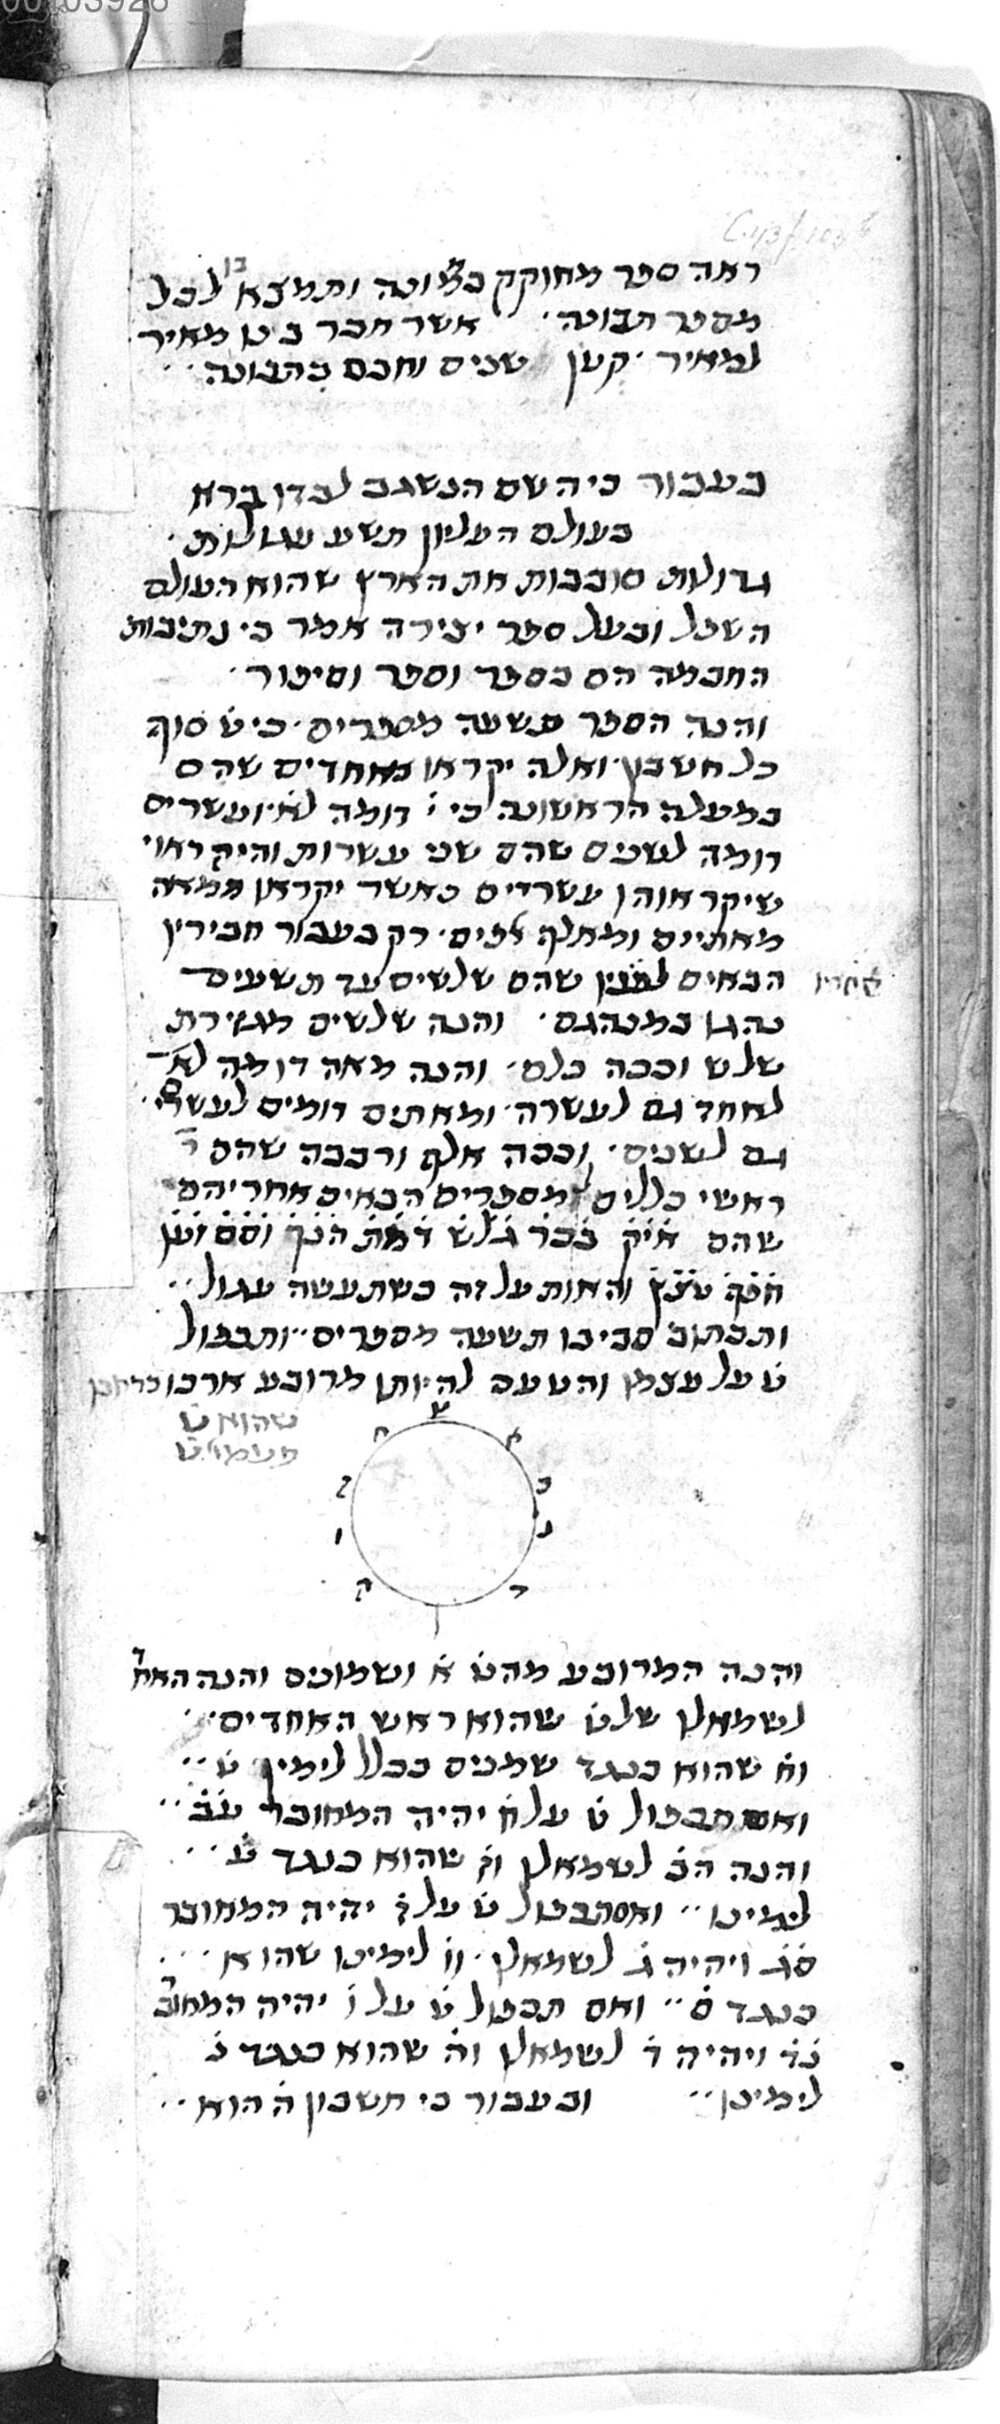 00103926
ראה ספר מחוקק באמונה ותמצא בו לכל
מספר תבונה אשר חבר בינו מאיר
למאיר קטן שנים וחכם בתבונה
בעבור כי השם הנשגב לבדו ברא
בעולם העליון תשע עגולות
גדולות סובבות את הארץ שהוא העולם
השפל ובעל ספר יצירה אמר כי נתיבות
החכמה הם בספר וספר וסיפור
והנה הספר תשעה מספרים כי ט סוף
כל חשבון ואלה יקראו באחדים שהם
במעלה הראשונה כי י דומה לא ועשרים
דומה לשנים שהם שני עשרות והיה ראוי
שיקראוהו עשריים כאשר יקראו ממאה
מאתיים ומאלף אלפים רק בעבור חביריו
הבאים לפניו שהם שלשים עד תשעים
אחריו
נהגו כמנהגם והנה שלשים מגזירת
שלש וככה כלם והנה מאה דומה לא
לאחד גם לעשרה ומאתים דומים לעשרי
גם לשנים וככה אלף ורבבה שהם
ראשי כללים למספרים הבאים אחריהם
שהם איק בכר גלש דמת הנך וסם זען
חפף טצץ והאות על זה כשתעשה עגול
ותכתוב סביבו תשעה מספרים ותכפול
ט על עצמו והטעם להיותו מרובע ארכו כרחבו
שהוא ט
פעמי ט
ט
א
ב
ג
ד
ה
ו
ז
ח
והנה המרובע מהט א ושמונים והנה האח'
לשמאלו של ט שהוא ראש האחדים
וח שהוא כנגד שמנים בכלל לימין ט
ואם תכפול ט על ח יהיה המחובר עב
והנה הב לשמאלו וז שהוא כנגד ע
לימינו ואם תכפול ט על ז יהיה המחובר
סג ויהיה ג לשמאלו וו לימינו שהוא
כנגד ס ואם תכפול ט על ו יהיה המחוב'
נד ויהיה ד לשמאלו וה שהוא כנגד נ
לימינו ובעבור כי חשבון ה הוא